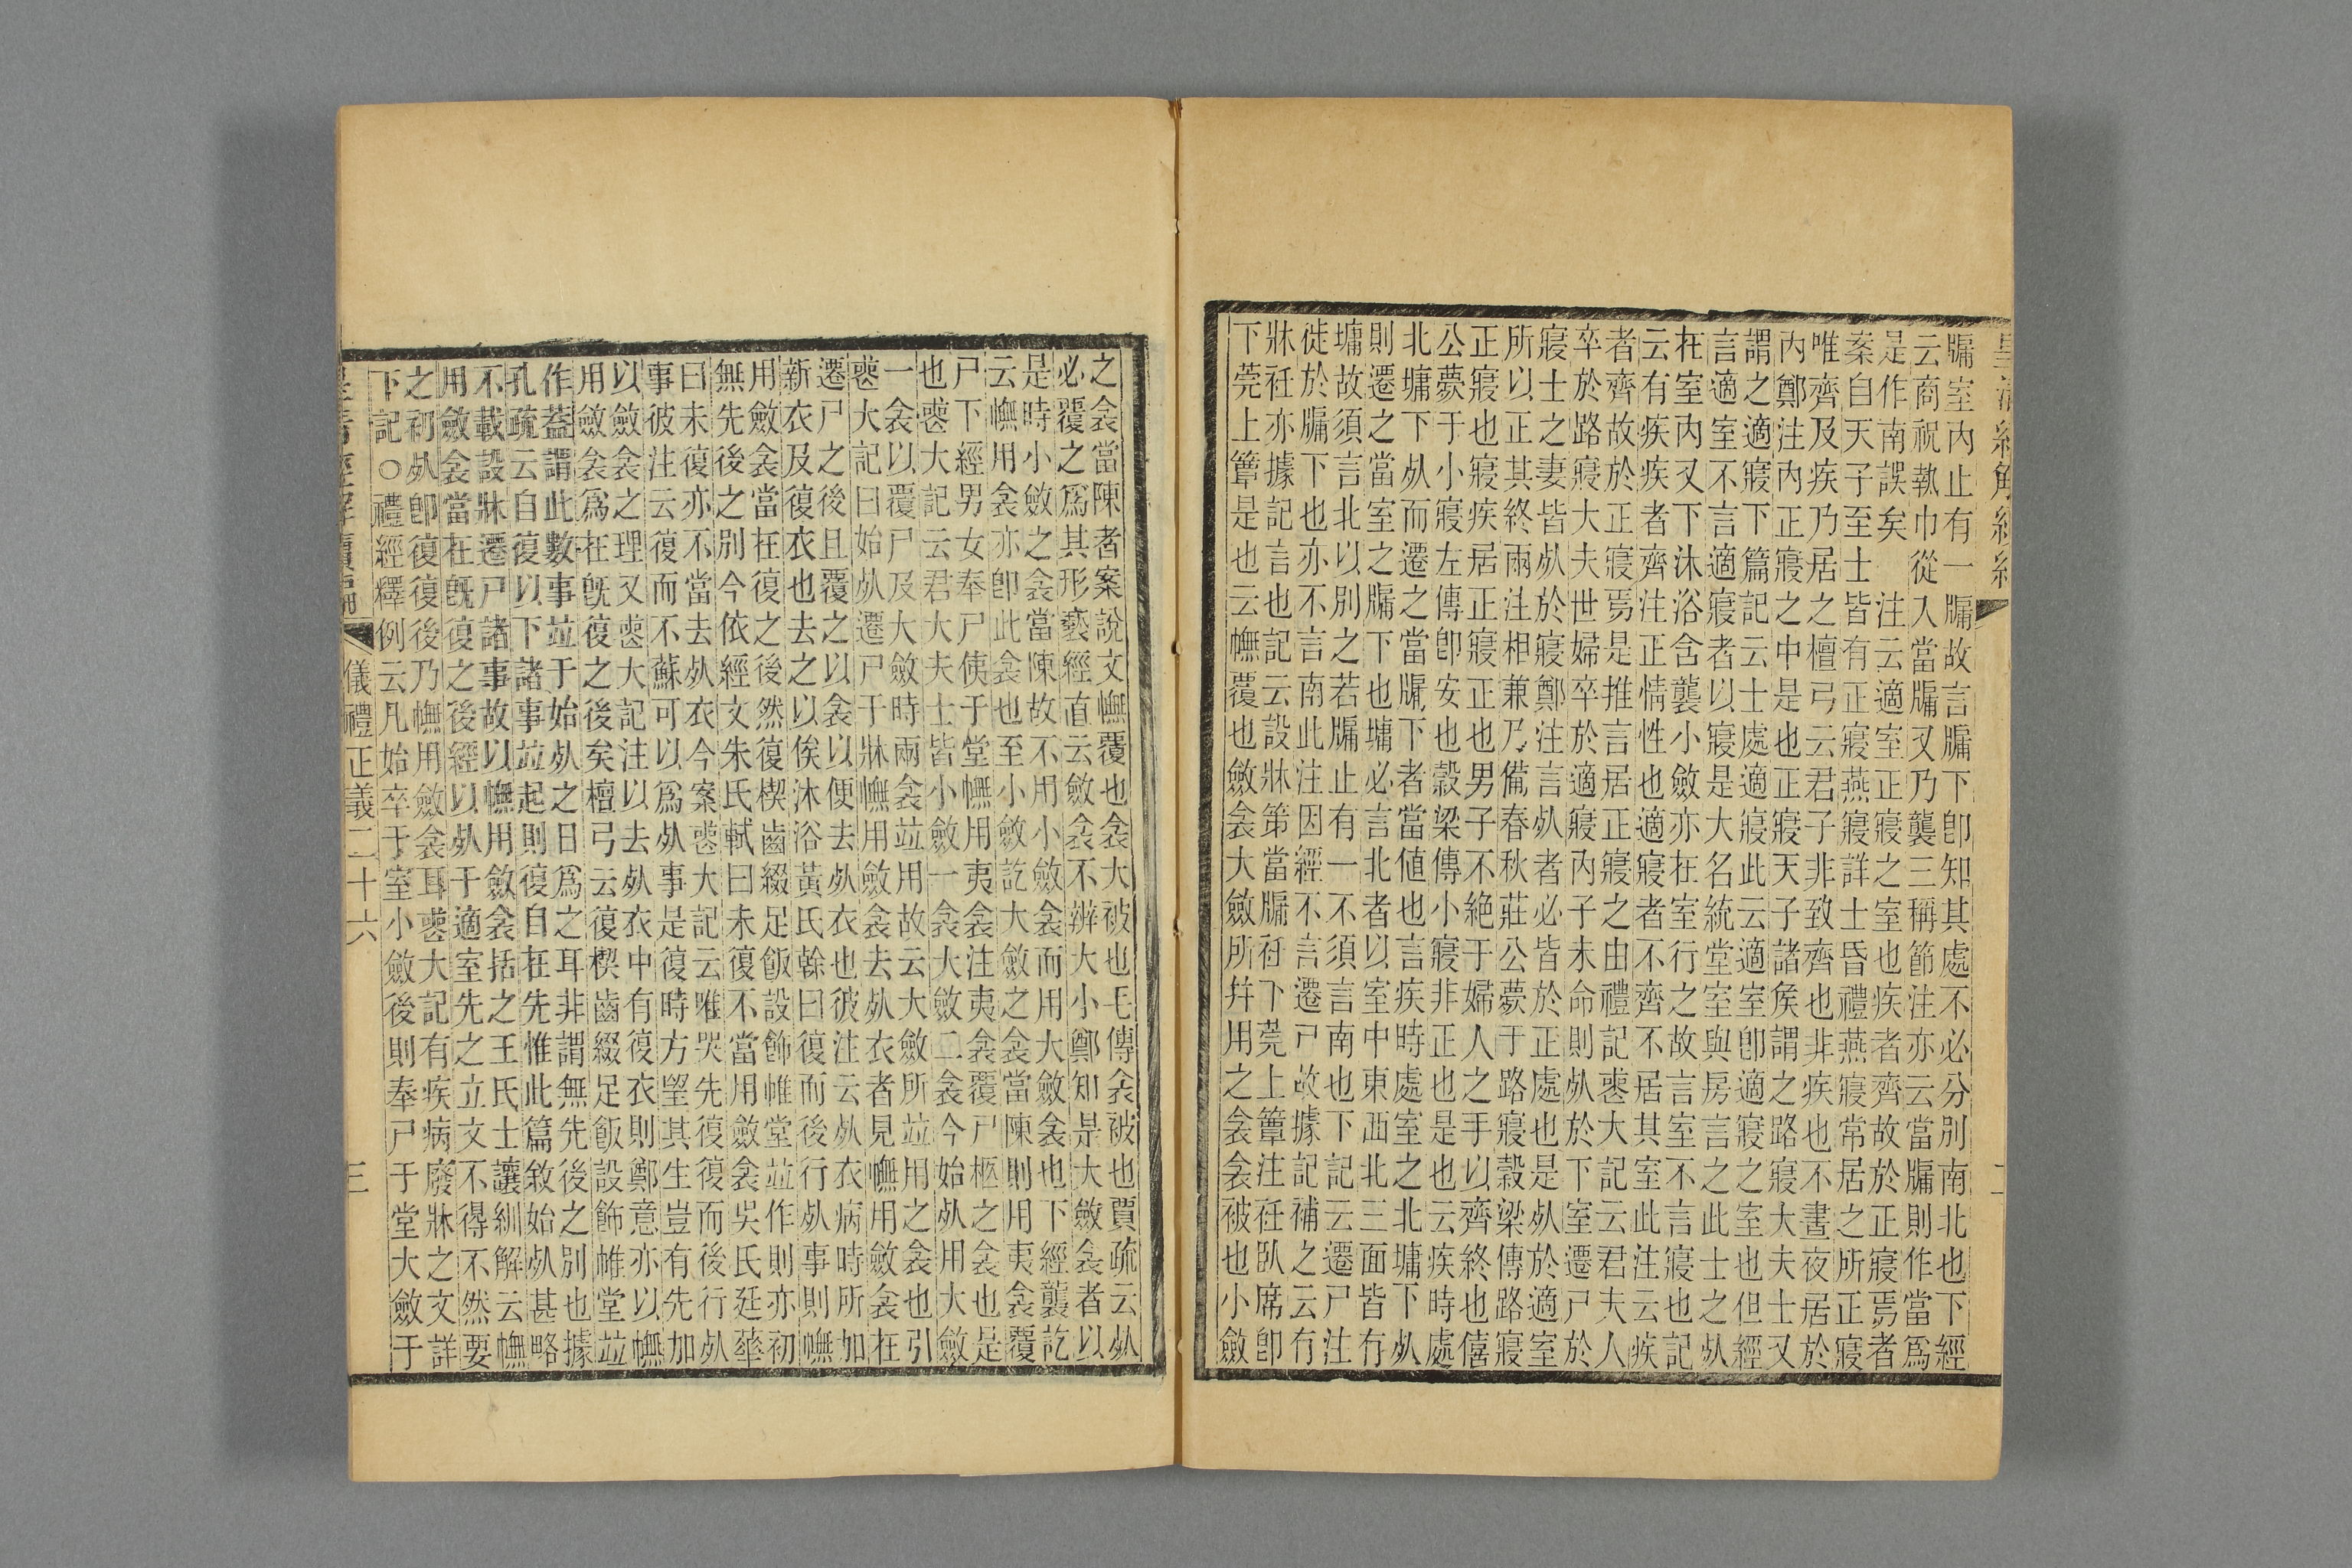 牖室內止有一牖故言牖下卽知其處不必分別南北也下經
云商祝執巾從入當牖又乃襲三稱節注亦云當牖則作當爲
是作南誤矣　注云適室正寢之室也疾者齊故於正寢焉者
案自天子至士皆有正寢燕寢詳士昏禮燕寢常居之所正寢
唯齊及疾乃居之檀弓云君子非致齊也非疾也不晝夜居於
內鄭注內正寢之中是也正寢天子諸矦謂之路寢大夫士又
謂之適寢下篇記云士處適寢此云適室卽適寢之室也但經
言適室不言適寢者以寢是大名統堂室與房言之此士之𣦸
在室內又下沐浴含襲小斂亦在室行之故言室不言寢也記
云有疾疾者齊注正情性也適寢者不齊不居其室此注云疾
者齊故於正寢焉是推言居正寢之由禮記喪大記云君夫人
卒於路寢大夫世婦卒於適寢內子未命則𣦸於下室遷尸於
寢士之妻皆𣦸於寢鄭注言𣦸者必皆於正處也是𣦸於適室
所以正其終兩注相兼乃備春秋莊公薨于路寢穀梁傳路寢
正寢也寢疾居正寢正也男子不絕于婦人之手以齊終也僖
公薨于小寢左傳卽安也穀梁傳小寢非正也是也云疾時處
北墉下𣦸而遷之當牖下者當値也言疾時處室之北墉下𣦸
則遷之當室之牖下也墉必言北者以室中東西北三面皆有
墉故須言北以別之若牖止有一不須言南也下記云遷尸注
徙於牖下也亦不言南此注因經不言遷尸故據記補之云有
牀衽亦據記言也記云設牀第當牖衽下莞上簟注衽臥席卽
下莞上簟是也云幠覆也斂衾大斂所幷用之衾衾被也小斂
之衾當陳者案說文幠覆也衾大被也毛傳衾被也賈疏云𣦸
必覆之爲其形褻經直云斂衾不辨大小鄭知是大斂衾者以
是時小斂之衾當陳故不用小斂衾而用大斂衾也下經襲訖
云幠用衾亦卽此衾也至小斂訖大斂之衾當陳則用夷衾覆
尸下經男女奉尸侇于堂幠用夷衾注夷衾覆尸柩之衾也是
也喪大記云君大夫士皆小斂一衾大斂二衾今始𣦸用大斂
一衾以覆尸及大斂時兩衾竝用故云大斂所竝用之衾也引
喪大記曰始𣦸遷尸于牀幠用斂衾去𣦸衣者見幠用斂衾在
遷尸之後且覆之以衾以便去𣦸衣也彼注云𣦸衣病時所加
新衣及復衣也去之以俟沐浴黃氏榦曰復而後行𣦸事則幠
用斂衾當在復之後然復楔齒綴足飯設飾帷堂竝作則亦初
無先後之別今依經文朱氏軾曰未復不當用斂衾吳氏廷華
曰未復亦不當去𣦸衣今案喪大記云唯哭先復復而後行𣦸
事彼注云復而不蘇可以爲𣦸事是復時方朢其生豈有先加
以斂衾之理又喪大記注以去𣦸衣中有復衣則鄭意亦以幠
用斂衾爲在旣復之後矣檀弓云復楔齒綴足飯設飾帷堂竝
作蓋謂此數事竝于始𣦸之日爲之耳非謂無先後之別也據
孔疏云自復以下諸事竝起則復自在先惟此篇敘始𣦸甚略
不載設牀遷尸諸事故以幠用斂衾括之王氏士讓紃解云幠
用斂衾當在旣復之後經以𣦸于適室先之立文不得不然要
之初𣦸卽復復後乃幠用斂衾耳喪大記有疾病廢牀之文詳
下記○禮經釋例云凡始卒于室小斂後則奉尸于堂大斂于
儀禮正義二十六
三